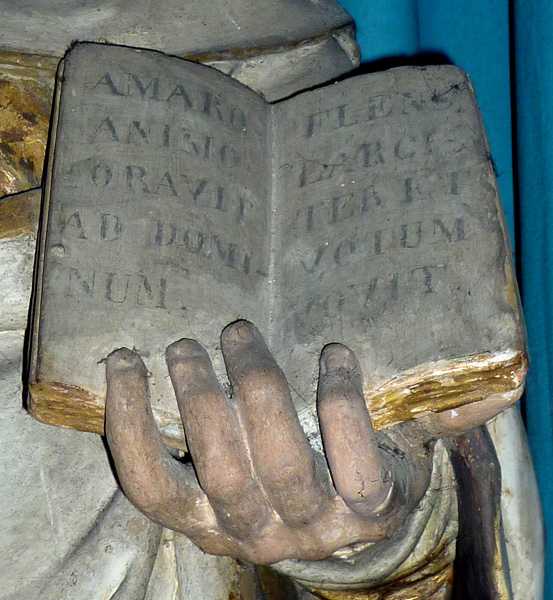 AMARO
ANIMO
ORAVIT
AD DOMI-
NUM.
FLENS
LARGI-
TER ET
VOTUM
VOVIT